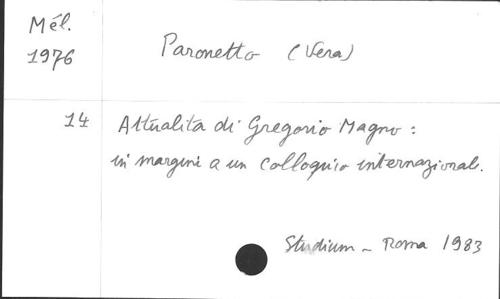 Mél.
1976
Paronetto (Vera)
14
Attualita di Gregorio Magno :
in margine a un colloquio internazionale.
Studium - Roma 1983